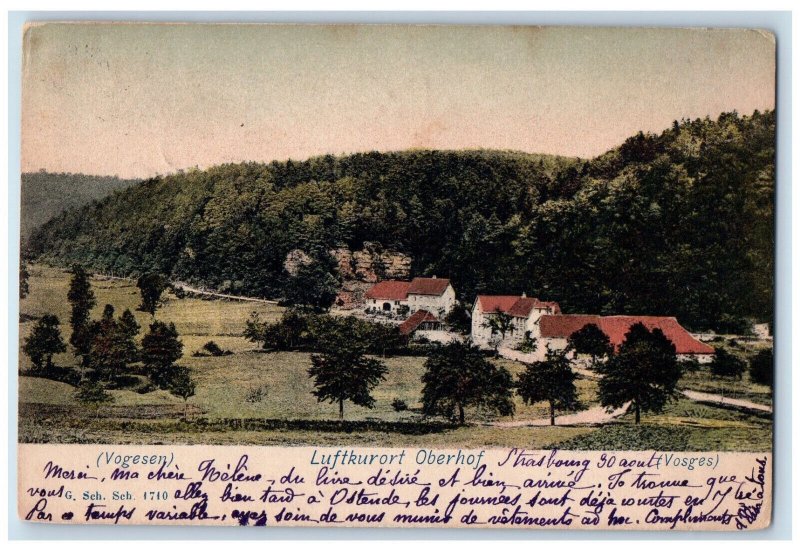 (Vogesen) Luftkurort Oberhof (Vosges)
Strasbourg 30 août
Merci, ma chère Hélène, du livre désiré et bien arrivé. Je trouve que
vous allez bien tard à Ostende, les journées sont déjà courtes en 7bre
G. Sch. Sch. 1710
Par ce temps variable, ayez soin de vous munir de vêtements ad hoc. Compliments
à tous